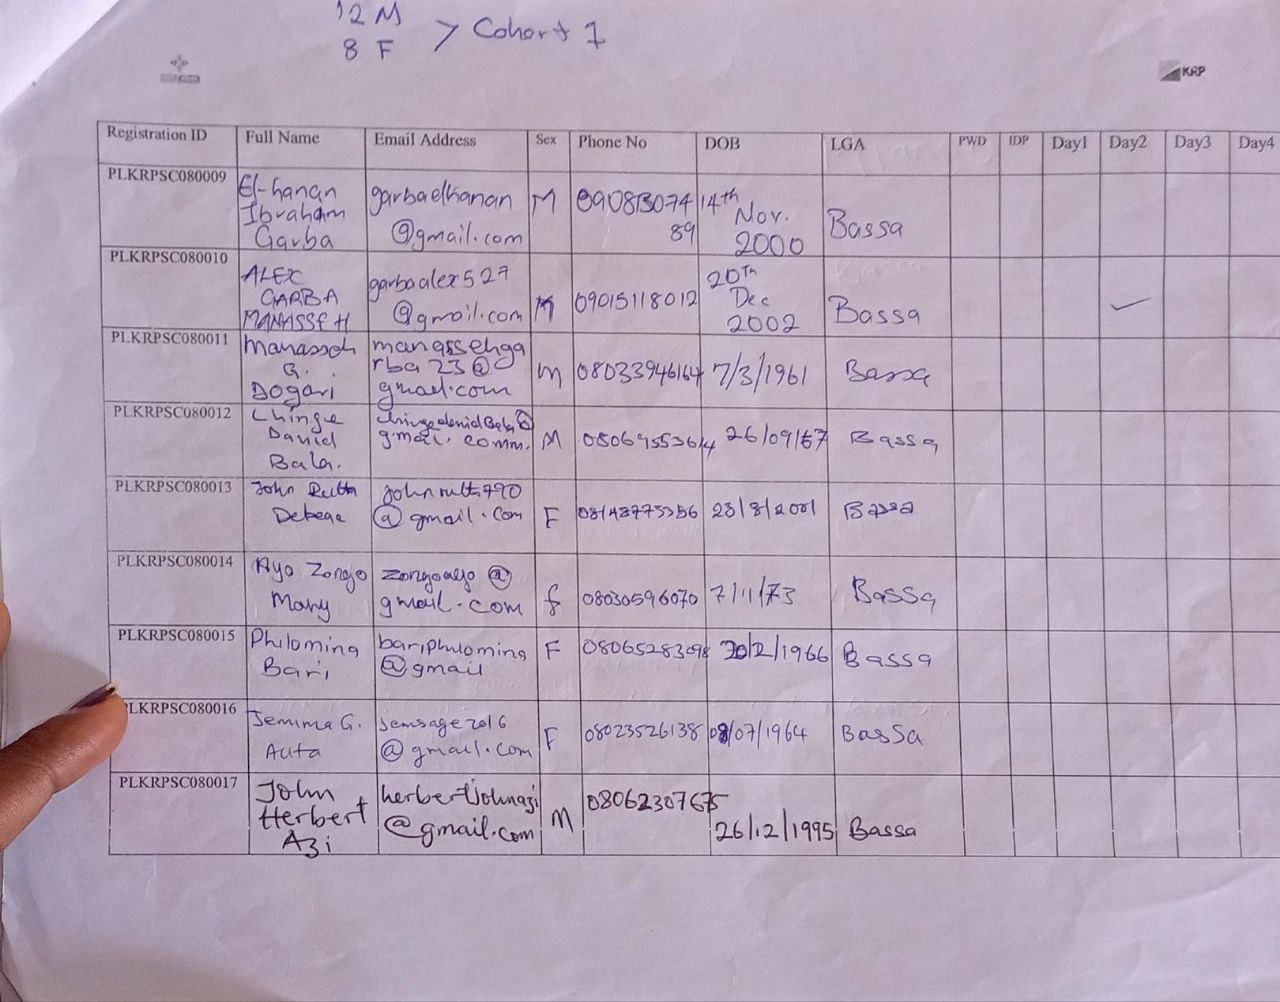 12 M
8 F > Cohort 1
KRP
Registration ID Full Name Email Address Sex Phone No DOB LGA PWD IDP Day1 Day2 Day3 Day4
PLKRPSC080009 El-hanan Ibraham Garba garbaelhanan@gmail.com M 09081307489 14th Nov. 2000 Bassa
PLKRPSC080010 ALEX GARBA MANASSEH garbaalex527@gmail.com M 09015118012 20Th Dec 2002 Bassa ✓
PLKRPSC080011 Manasseh G. Dogari manassehgarba23@gmail.com m 08033946164 7/3/1961 Bassa
PLKRPSC080012 Chinge David Bala. M 26/09/67 Bassa
PLKRPSC080013 John Ruth @gmail.com F 08148775356 23/8/2001 Bassa
PLKRPSC080014 Ayo Zongo Mary zongoayo@gmail.com f 08030596070 7/11/73 Bassa
PLKRPSC080015 Philomina Bari bariphilomina@gmail F 08065283098 /2/1966 Bassa
PLKRPSC080016 Jemima G. Auta jemsage2016@gmail.com F 08023526138 /07/1964 Bassa
PLKRPSC080017 John Herbert Azi herbertjohnazi@gmail.com M 26/12/1995 Bassa